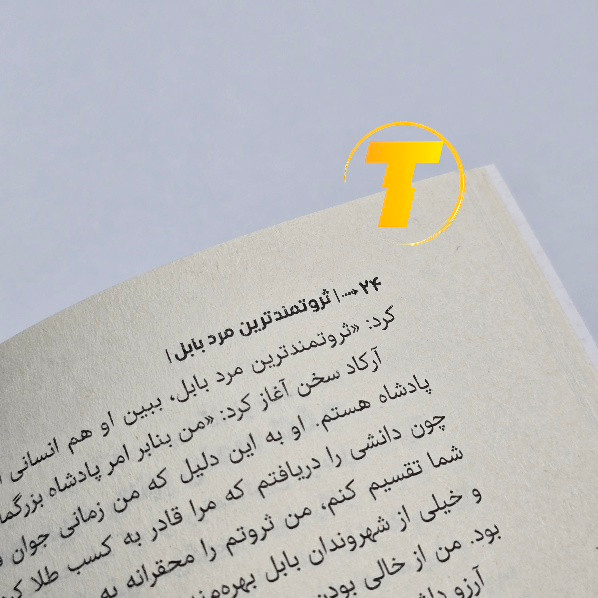 T
۲۴ ⇠ | ثروتمندترین مرد بابل |
کرد: «ثروتمندترین مرد بابل، ببین او هم انسانی
آرکاد سخن آغاز کرد: «من بنابر امر پادشاه
پادشاه هستم. او به این دلیل که من زمانی جوان
چون دانشی را دریافتم که مرا قادر به کسب طلا
شما تقسیم کنم، من ثروتم را محقرانه به
و خیلی از شهروندان بابل
بود. من از خالی بودن
آرزو